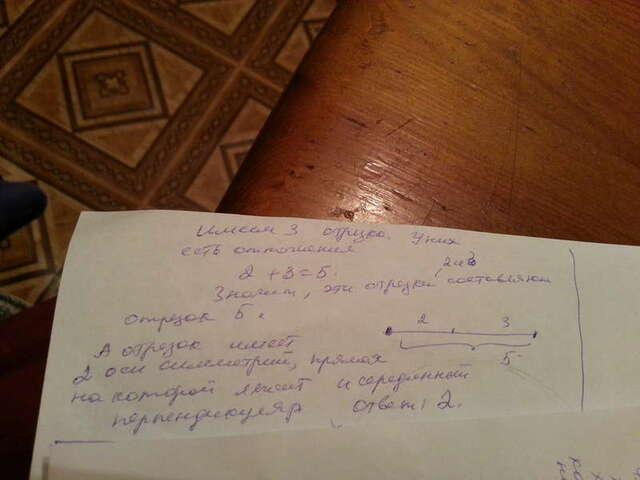 Имеем 3 отрезка. У них
есть отношения
2 + 3 = 5.
2 и 3
Значит, эти отрезки составляют
отрезок 5.
2 3
5
А отрезок имеет
2 оси симметрий, прямая
на которой лежит и серединный
перпендикуляр ответ: 2.